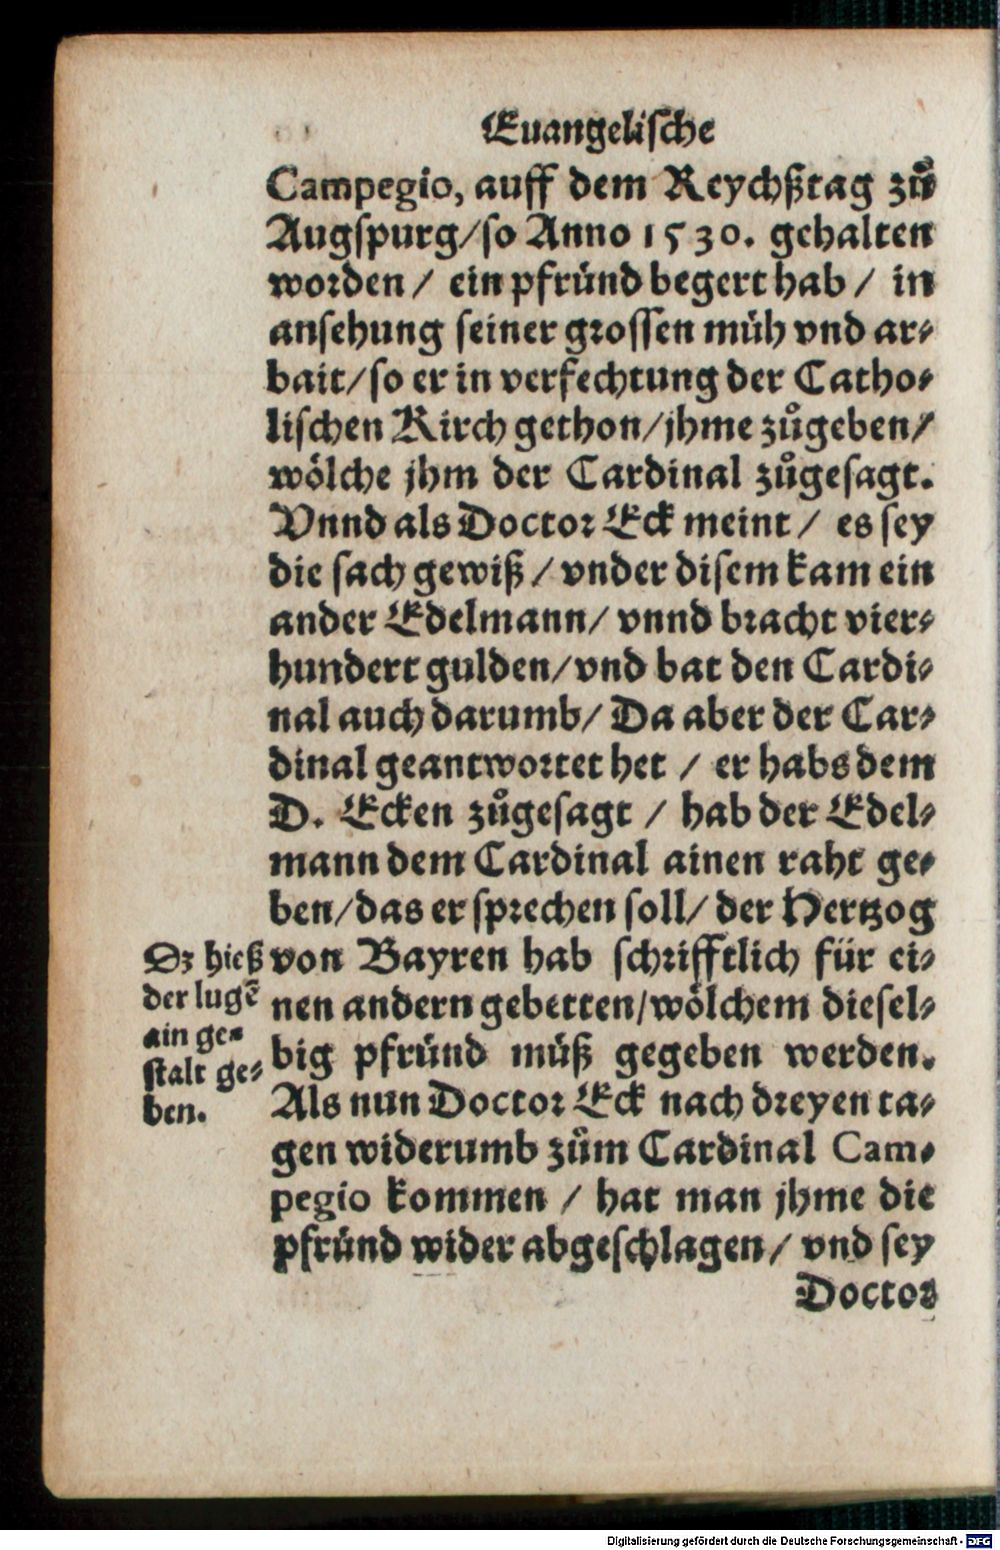 Euangelische
Campegio, auff dem Reychßtag zů
Augspurg/so Anno 1530. gehalten
worden / ein pfründ begert hab / in
ansehung seiner grossen müh vnd ar⸗
bait/so er in verfechtung der Catho⸗
lischen Kirch gethon/jhme zůgeben/
wölche jhm der Cardinal zůgesagt.
Vnnd als Doctor Eck meint / es sey
die sach gewiß / vnder disem kam ein
ander Edelmann/ vnnd bracht vier⸗
hundert gulden/vnd bat den Cardi⸗
nal auch darumb/ Da aber der Car⸗
dinal geantwortet het / er habs dem
D. Ecken zůgesagt / hab der Edel⸗
mann dem Cardinal ainen raht ge⸗
ben/das er sprechen soll/ der Hertzog
von Bayren hab schrifftlich für ei⸗
nen andern gebetten/wölchem diesel⸗
big pfründ müß gegeben werden.
Als nun Doctor Eck nach dreyen ta⸗
gen widerumb zům Cardinal Cam⸗
pegio kommen / hat man jhme die
pfründ wider abgeschlagen/ vnd sey
Doctor
Dz hieß
der lugē
ain ge⸗
stalt ge⸗
ben.
Digitalisierung gefördert durch die Deutsche Forschungsgemeinschaft - DFG